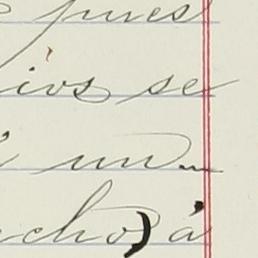 pues
ios se
un
cho) á